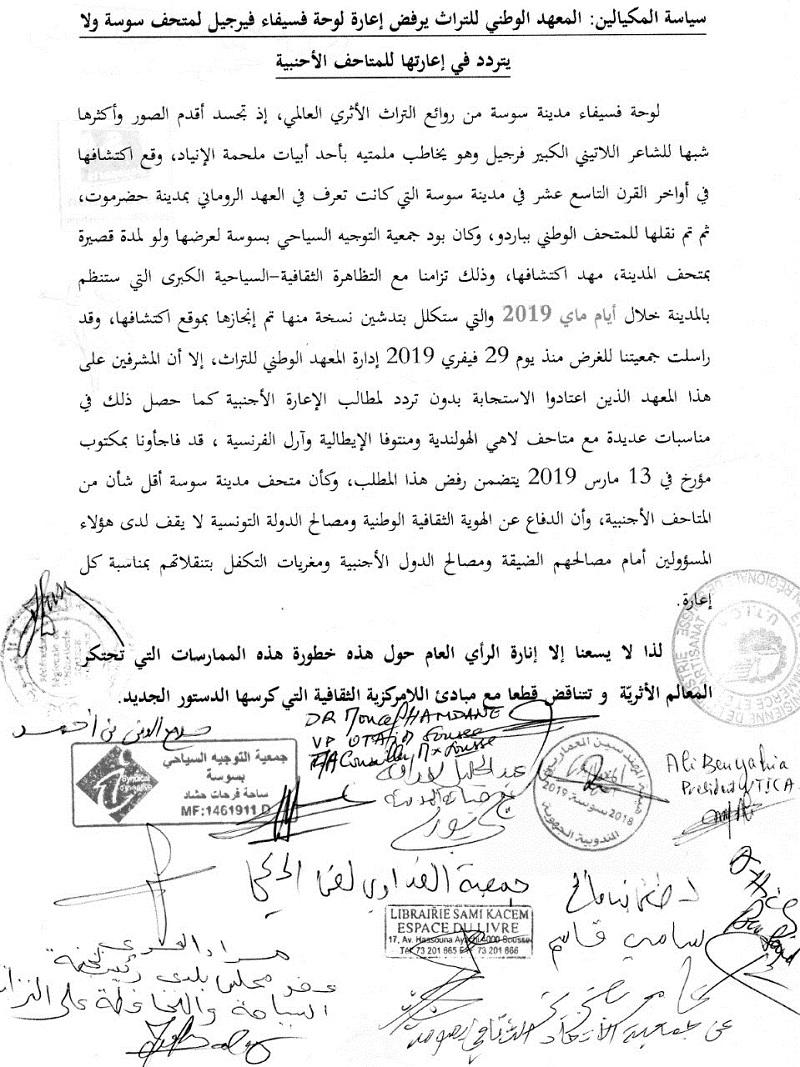 سياسة المكيالين: المعهد الوطني للتراث يرفض إعارة لوحة فسيفاء فيرجيل لمتحف سوسة ولا
يتردد في إعارتها للمتاحف الأحنبية
لوحة فسيفاء مدينة سوسة من روائع التراث الأثري العالمي، إذ تجسد أقدم الصور وأكثرها
شبها للشاعر اللاتيني الكبير فرجيل وهو يخاطب ملمتيه بأحد أبيات ملحمة الإنياد، وقع اكتشافها
في أواخر القرن التاسع عشر في مدينة سوسة التي كانت تعرف في العهد الروماني بمدينة حضرموت،
ثم تم نقلها للمتحف الوطني بباردو، وكان بود جمعية التوجيه السياحي بسوسة لعرضها ولو لمدة قصيرة
بمتحف المدينة، مهد اكتشافها، وذلك تزامنا مع التظاهرة الثقافية-السياحية الكبرى التي ستنظم
بالمدينة خلال أيام ماي 2019 والتي ستكلل بتدشين نسخة منها تم إنجازها بموقع اكتشافها، وقد
راسلت جمعيتنا للغرض منذ يوم 29 فيفري 2019 إدارة المعهد الوطني للتراث، إلا أن المشرفين على
هذا المعهد الذين اعتادوا الاستجابة بدون تردد لمطالب الإعارة الأجنبية كما حصل ذلك في
مناسبات عديدة مع متاحف لاهي الهولندية ومنتوفا الإيطالية وآرل الفرنسية ، قد فاجأونا بمكتوب
مؤرخ في 13 مارس 2019 يتضمن رفض هذا المطلب، وكأن متحف مدينة سوسة أقل شأن من
المتاحف الأجنبية، وأن الدفاع عن الهوية الثقافية الوطنية ومصالح الدولة التونسية لا يقف لدى هؤلاء
المسؤولين أمام مصالحهم الضيقة ومصالح الدول الأجنبية ومغريات التكفل بتنقلاتهم بمناسبة كل
إعارة.
لذا لا يسعنا إلا إنارة الرأي العام حول هذه خطورة هذه الممارسات التي تحتكر
المعالم الأثريّة و تتناقض قطعا مع مبادئ اللامركزية الثقافية التي كرسها الدستور الجديد.
صلاح الدين بن أحمد
DR Moncef HAMDANE
VP OTATID Sousse
جمعية التوجيه السياحي
بسوسة
ساحة فرحات حشاد
MF:1461911 D
عبد الجليل
صيانة المدينة
2018 سوسة 2019
المندوبية الجهوية
Ali Benyahia
President UTICA
UTICA
جمعية الفداوي لفن الحكي
LIBRAIRIE SAMI KACEM
ESPACE DU LIVRE
17, Av. Hassouna Ayachi 4000 Sousse
Tél 73 201 665 F 73 201 666
سامي قاسم
مراد
عضو مجلس بلدي رئيس لجنة
السياحة والمحافظة على التراث
عن جمعية الاتحاد الثقافي